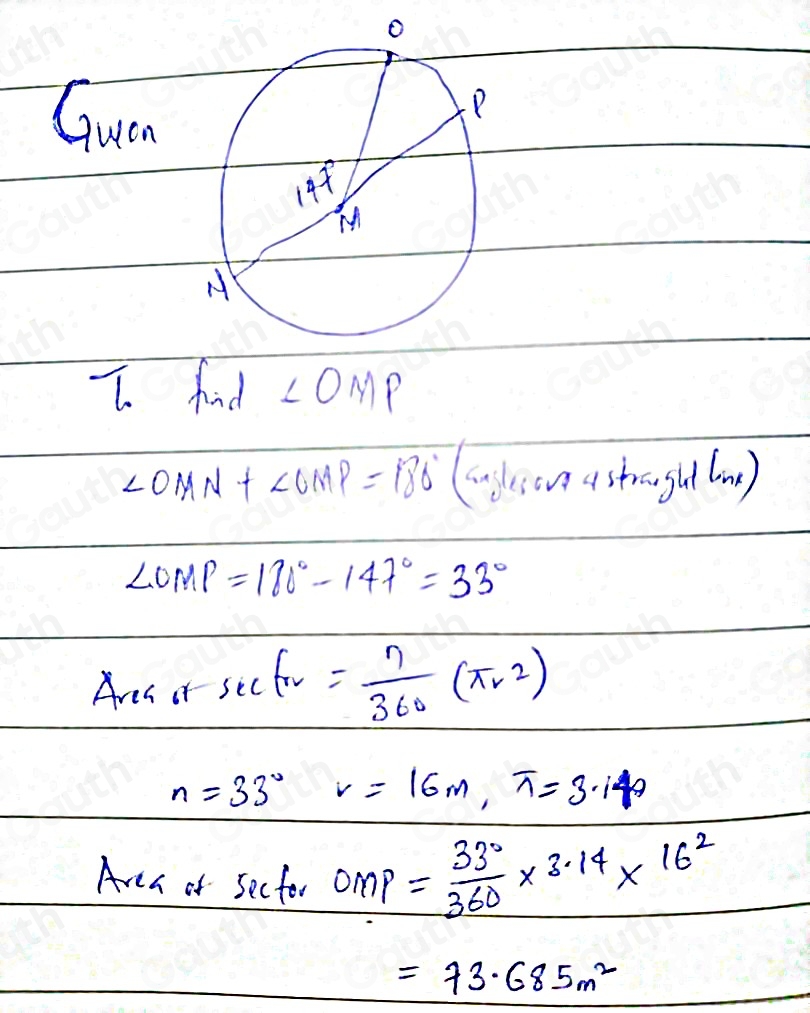 O
P
Given
147°
M
N
To find ∠OMP
∠OMN + ∠OMP = 180° (angles on a straight line)
∠OMP = 180° - 147° = 33°
Area of sector = n/360 (πr²)
n = 33° r = 16m, π = 3.14
Area of sector OMP = 33°/360 × 3.14 × 16²
= 73.685m²